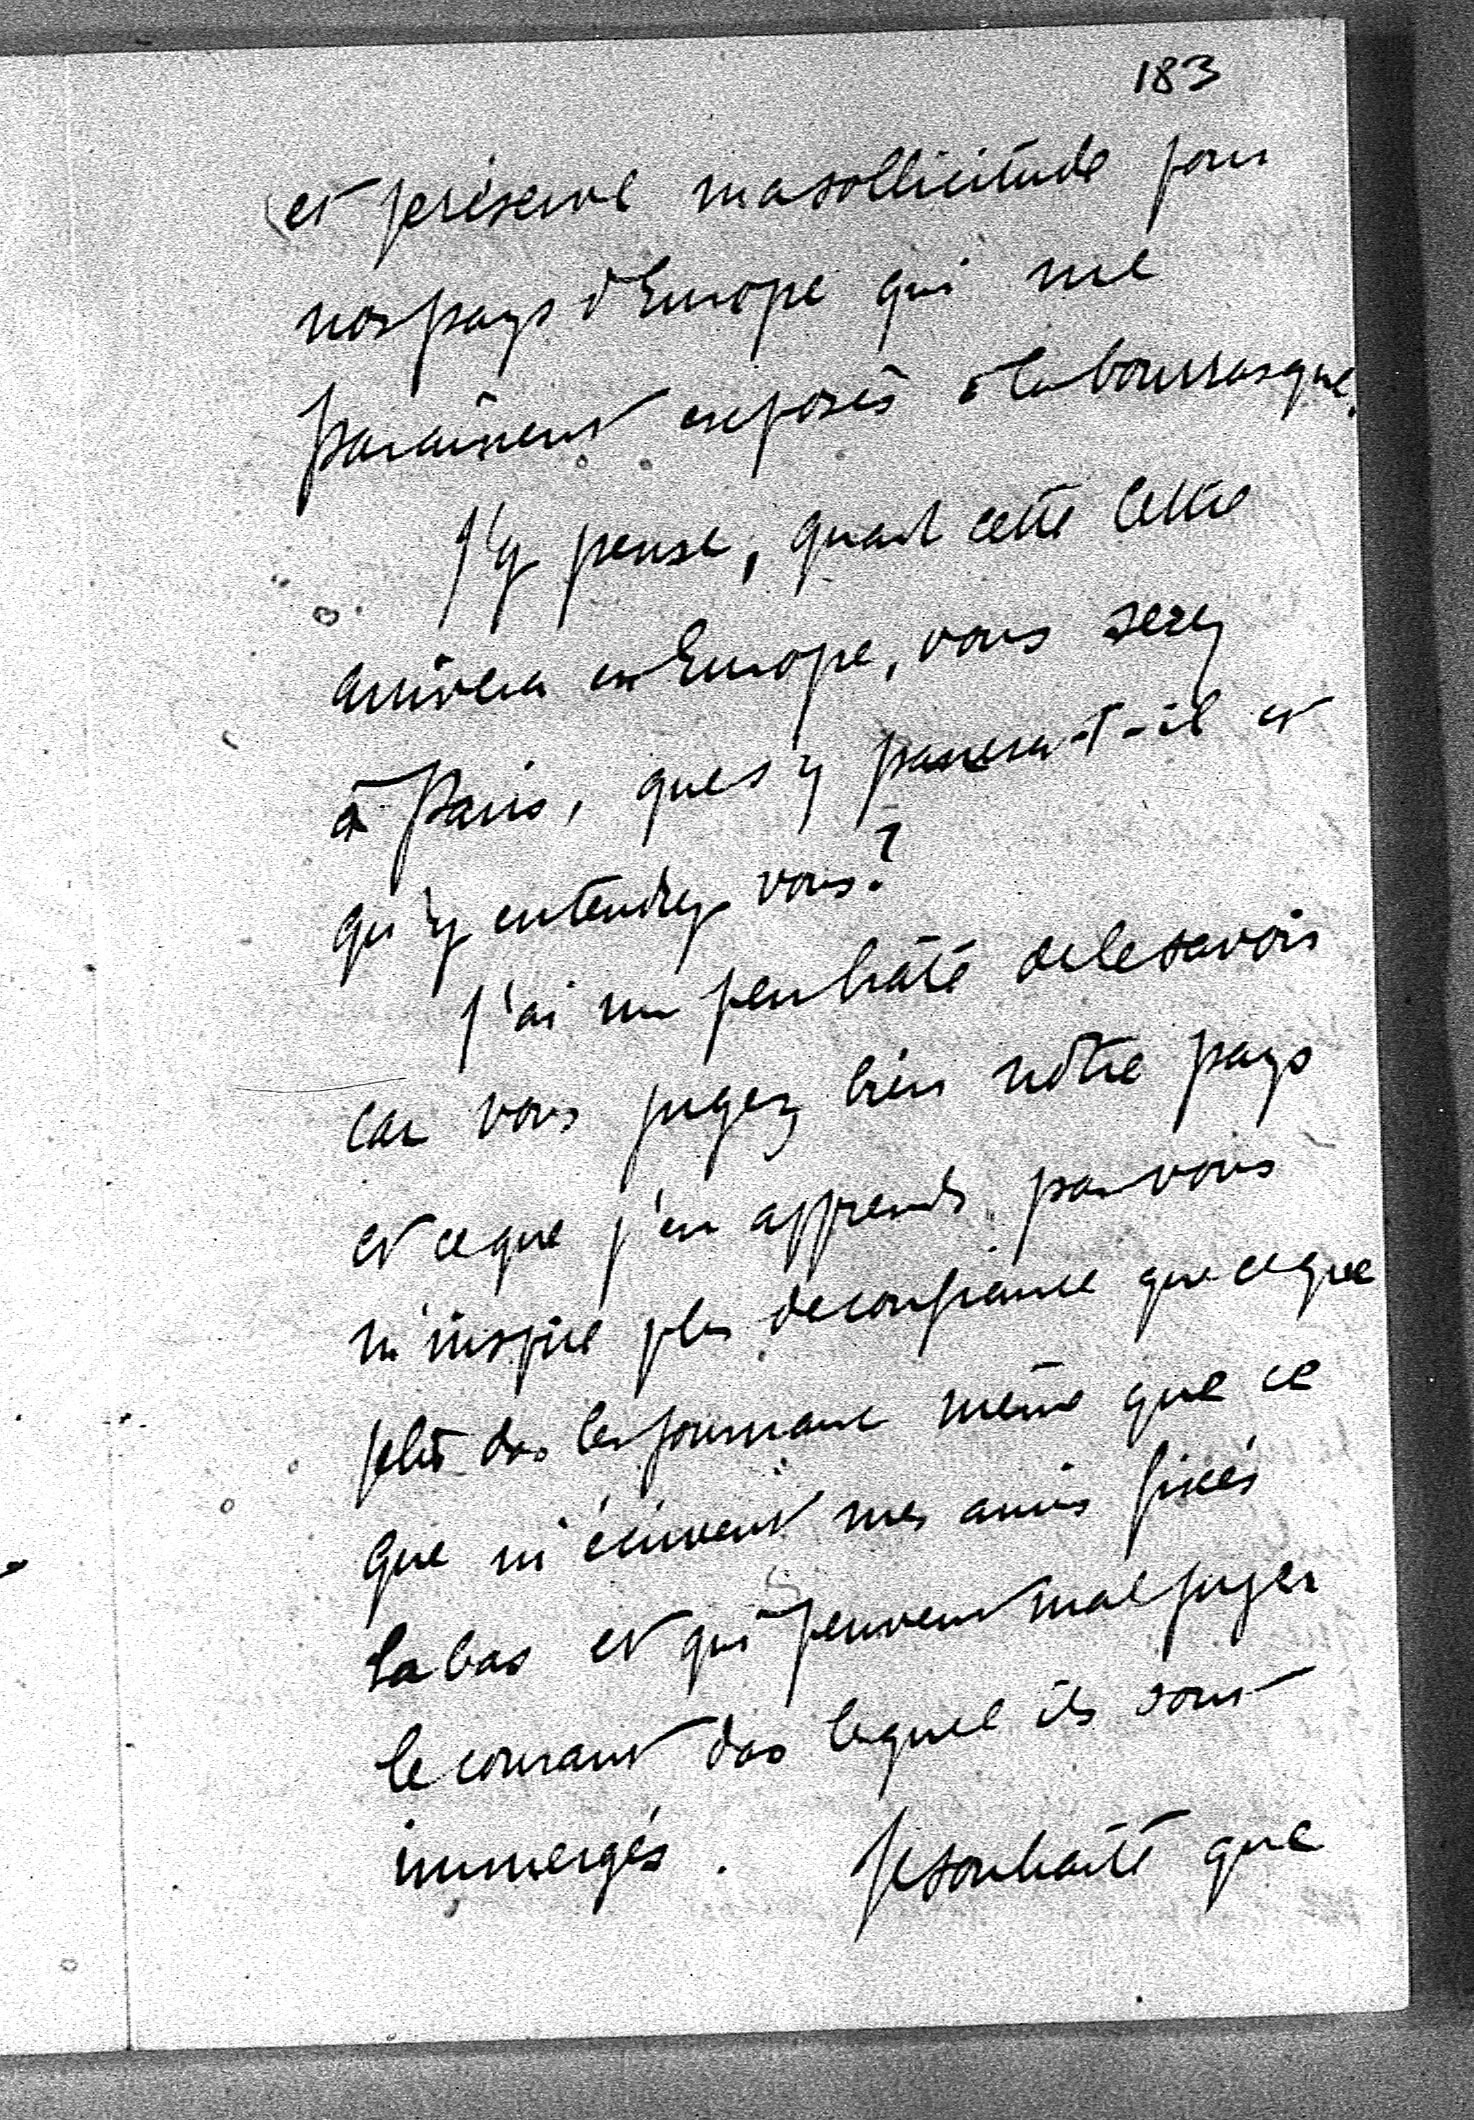 183
et je réserve ma sollicitude pour
nos pays d'Europe qui me
paraissent exposés à la bourrasque.
J'y pense, quand cette lettre
arrivera en Europe, vous serez
à Paris, que s'y passera-t-il et
qu'y entendrez vous?
J'ai un peu hâte de le savoir
car vous jugez bien notre pays
et ce que j'en apprends par vous
m'inspire plus de confiance que ce que
je lis dans les journaux même que ce
que m'écrivent mes amis fixés
la bas et qui peuvent mal juger
le courant dans lequel ils sont
immergés. Je souhaite que